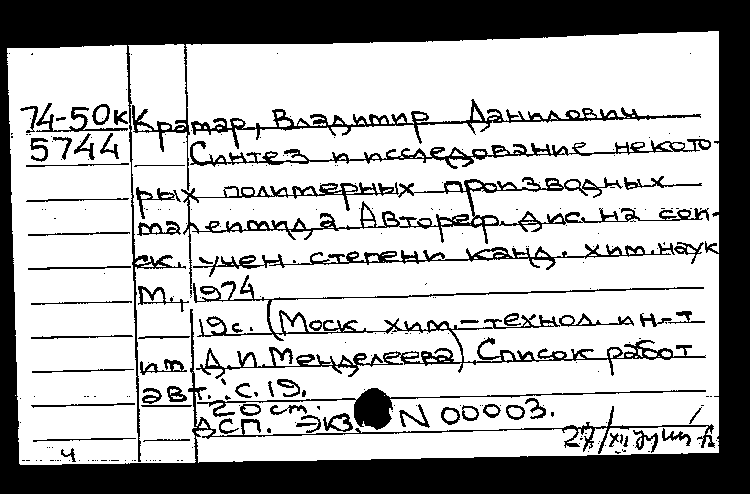 74-50к Крамар, Владимир Данилович.
5744 Синтез и исследование некото-
рых полимерных производных
малеимида. Автореф. дис. на сои-
ск. учен. степени канд. хим. наук
М., 1974.
19 с. (Моск. хим.-технол. ин-т
им. Д.И. Менделеева). Список работ
авт.: с. 19.
20 cm.
ДСП. Экз. N 00003.
27/XII
ч